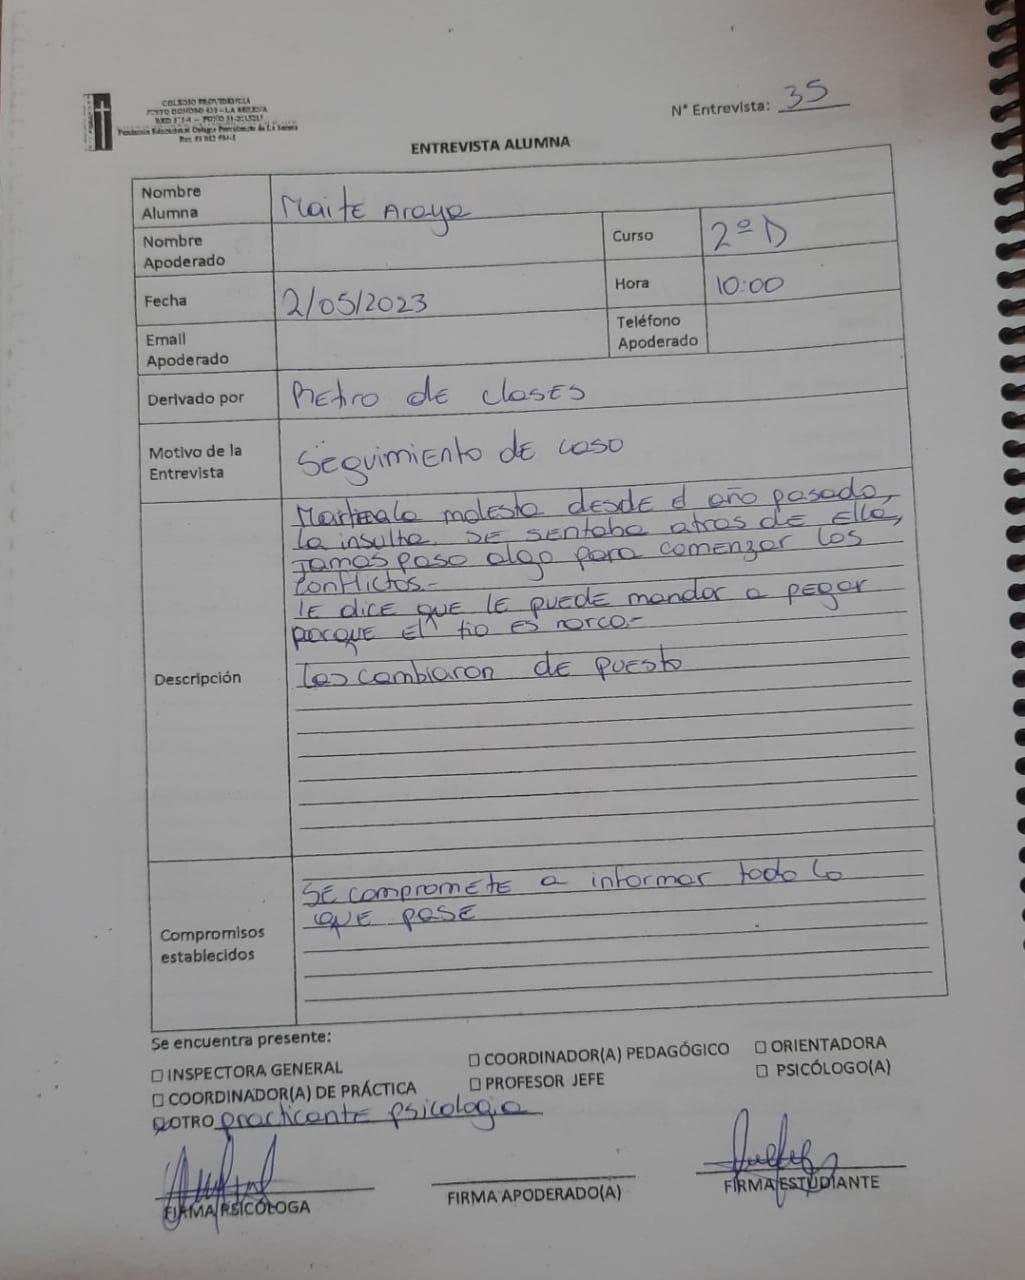 COLEGIO PROVIDENCIA
N° Entrevista: 35
ENTREVISTA ALUMNA
Nombre Alumna Maite Araya
Nombre Apoderado
Curso 2º D
Fecha 2/05/2023
Hora 10:00
Email Apoderado
Teléfono Apoderado
Derivado por Retiro de clases
Motivo de la Entrevista Seguimiento de caso
Descripción
la molesta desde el año pasado,
la insulta. Se sentaba atras de ella,
jamas paso algo para comenzar los
conflictos.-
le dice que le puede mandar a pegar
porque el tio es narco.-
Las cambiaron de puesto
Compromisos establecidos
Se compromete a informar todo lo
que pase
Se encuentra presente:
☐ INSPECTORA GENERAL ☐ COORDINADOR(A) PEDAGÓGICO ☐ ORIENTADORA
☐ COORDINADOR(A) DE PRÁCTICA ☐ PROFESOR JEFE ☐ PSICÓLOGO(A)
OTRO practicante psicologia
FIRMA PSICÓLOGA FIRMA APODERADO(A) FIRMA ESTUDIANTE